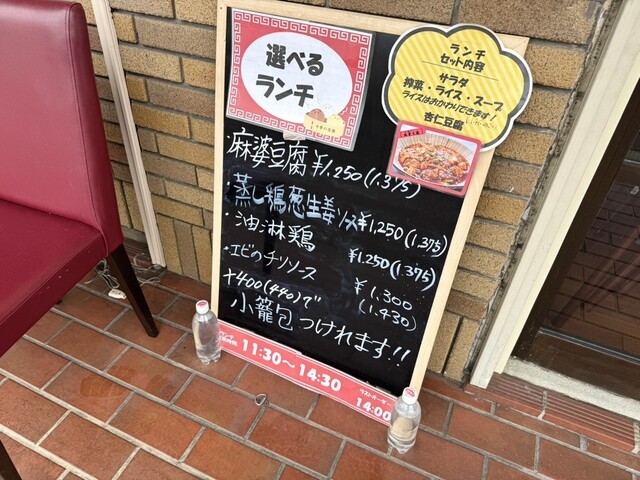 選べる
ランチ
ランチ
セット内容
サラダ
搾菜・ライス・スープ
ライスはおかわりできます!
杏仁豆腐
・麻婆豆腐 ¥1,250(1.375)
・蒸し鶏葱生姜ソース ¥1,250(1.375)
・油淋鶏 ¥1,250(1.375)
・エビのチリソース ¥1,300(1.430)
+400(440)で
小籠包つけれます!!
11:30〜14:30
ラストオーダー
14:00